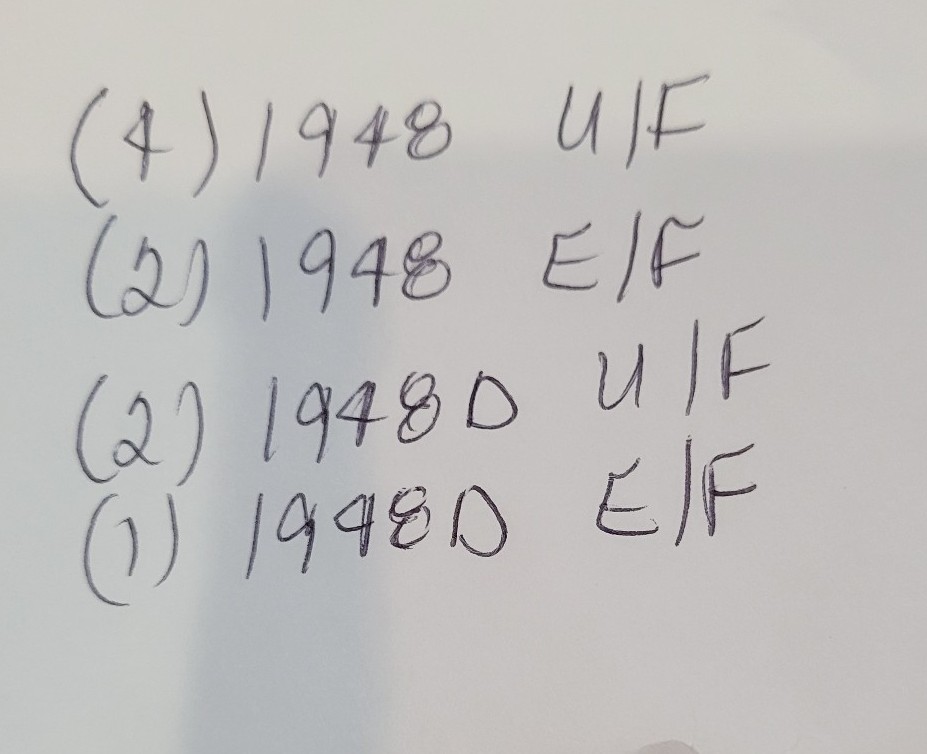 (4) 1948 U/F
(2) 1948 E/F
(2) 1948 D U/F
(1) 1948 D E/F